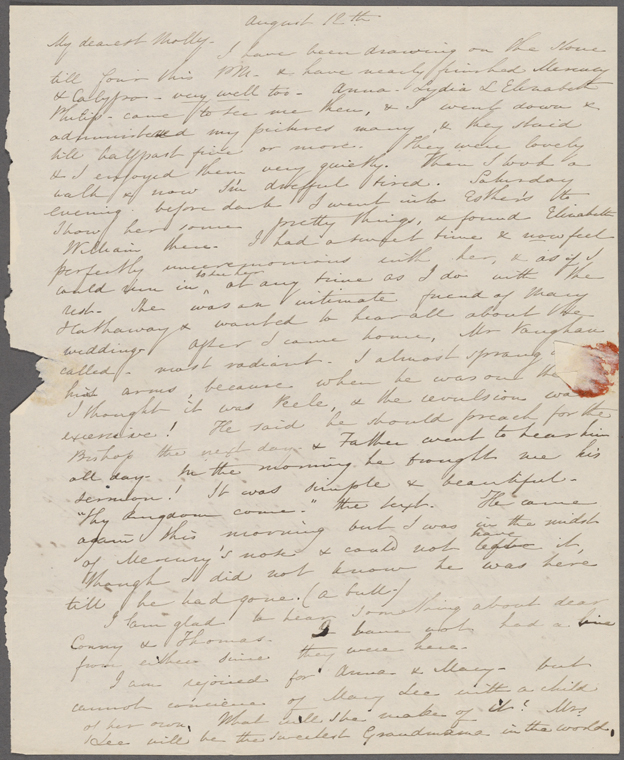 August 12th
My dearest Molly. I have been drawing on the stone
till four this P.M. & have nearly finished Mercury
& Calypso - very well too. Anna. Lydia & Elizabeth
Philips came to see me then, & I went down &
administered my pictures many, & they staid
till half past five or more. They were lovely
& I enjoyed them very quietly. Then I took a
walk & now I'm dretful tired. Saturday
evening before dark I went into Esther's to
show her some pretty things, & found Elizabeth
William there. I had a sweet time & now feel
perfectly unceremonious with her, & as if I
could run in, to her at any time as I do with the
rest. She was an intimate friend of Mary
Hathaway & wanted to hear all about the
wedding. After I came home, Mr Vaughan
called - most radiant. I almost sprang
his arms because when he was out the
I thought it was Peele, & the revulsion was
excessive! He said he should preach for the
Bishop the next day & Father went to hear him
all day. In the morning he brought me his
sermon! It was simple & beautiful.
"Thy kingdom come." the text. He came
again this morning but I was in the midst
of Mercury's nose & could not leave it,
though I did not know he was here
till he had gone. (a bull.)
I am glad to hear something about dear
Conny & Thomas. I have not had a line
from either since they were here.
I am rejoiced for Anna & Mary - but
cannot conceive of Mary Lee with a child
of her own. What will she make of it! Mrs
Lee will be the sweetest Grandmama in the world.